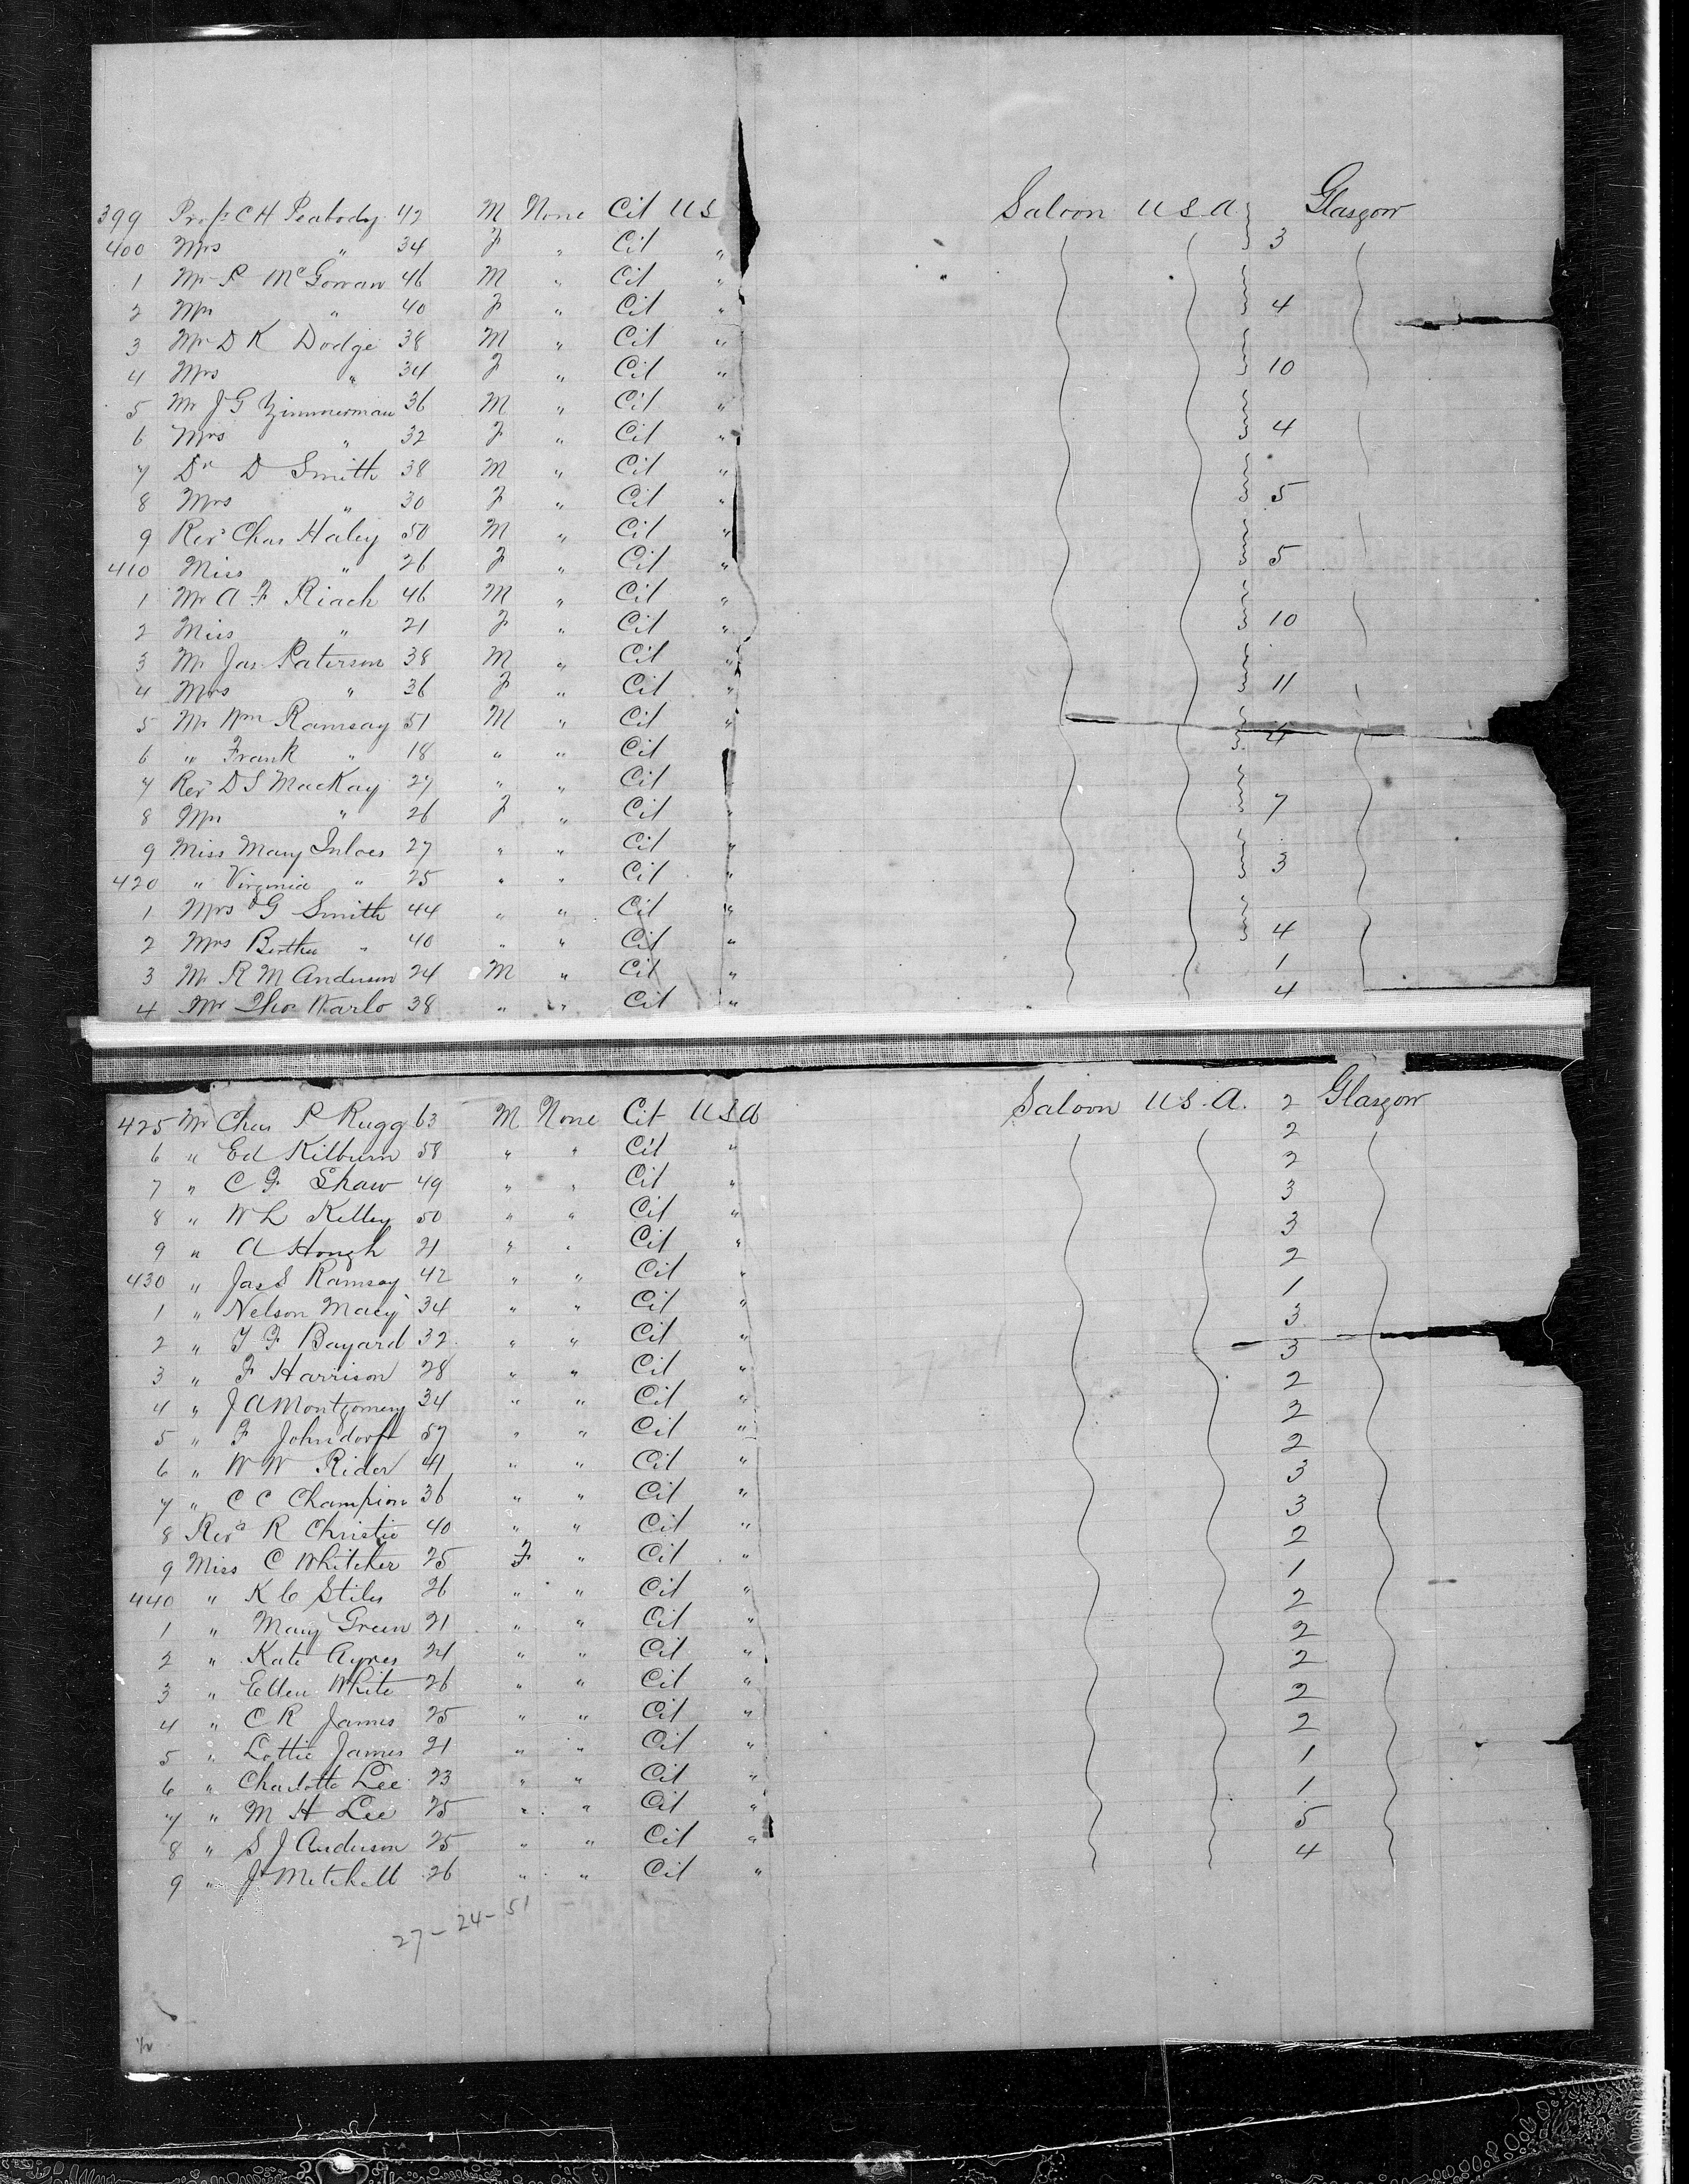 399 Profr C H Peabody 42 M None Cit US Saloon U.S.A. Glasgow
400 Mrs " 34 F " Cit " 3
1 Mr P McGowan 46 M " Cit "
2 Mrs " 40 F " Cit " 4
3 Mr D K Dodge 38 M " Cit "
4 Mrs " 34 F " Cit " 10
5 Mr J G Zimmerman 36 M " Cit "
6 Mrs " 32 F " Cit " 4
7 Dr D Smith 38 M " Cit "
8 Mrs " 30 F " Cit " 5
9 Revd Chas Haley 50 M " Cit "
410 Miss " 26 F " Cit " 5
1 Mr A F Riach 46 M " Cit "
2 Miss " 21 F " Cit " 10
3 Mr Jas Paterson 38 M " Cit "
4 Mrs " 36 F " Cit " 11
5 Mr Wm Ramsay 51 M " Cit "
6 " Frank " 18 " " Cit 4
7 Revd D S MacKay 27 " " Cit
8 Mrs " 26 F " Cit " 7
9 Miss Mary Inloes 27 " " Cit "
420 " Virginia " 25 " " Cit " 3
1 Mrs G Smith 44 " " Cit "
2 Mrs Bertha " 40 " " Cit " 4
3 Mr R M Anderson 24 M " Cit " 1
4 Mr Thos Warlo 38 " " Cit " 4
425 Mr Chas P Rugg 63 M None Cit USA Saloon U.S.A. 2 Glasgow
6 " Ed Kilburn 58 " " Cit " 2
7 " C F Shaw 49 " " Cit " 2
8 " W L Kelley 50 " " Cit " 3
9 " A Hough 21 " " Cit " 3
430 " Jas S Ramsay 42 " " Cit " 2
1 " Nelson Macy 34 " " Cit " 1
2 " T F Bayard 32 " " Cit " 3
3 " F Harrison 28 " " Cit " 3
4 " J A Montgomery 34 " " Cit " 2
5 " F Johndorf 57 " " Cit " 2
6 " W W Rider 41 " " Cit " 2
7 " C C Champion 36 " " Cit " 3
8 Revd R Christie 40 " " Cit " 3
9 Miss C Whitcher 25 F " Cit " 2
440 " K C Stiles 26 " " Cit " 1
1 " Mary Green 21 " " Cit " 2
2 " Kate Ayres 24 " " Cit " 2
3 " Ellen White 26 " " Cit " 2
4 " C R James 25 " " Cit " 2
5 " Lottie James 21 " " Cit " 2
6 " Charlotte Lee 23 " " Cit " 1
7 " M H Lee 25 " " Cit " 1
8 " S J Anderson 25 " " Cit " 5
9 " J Mitchell 26 " " Cit " 4
27 - 24 - 51